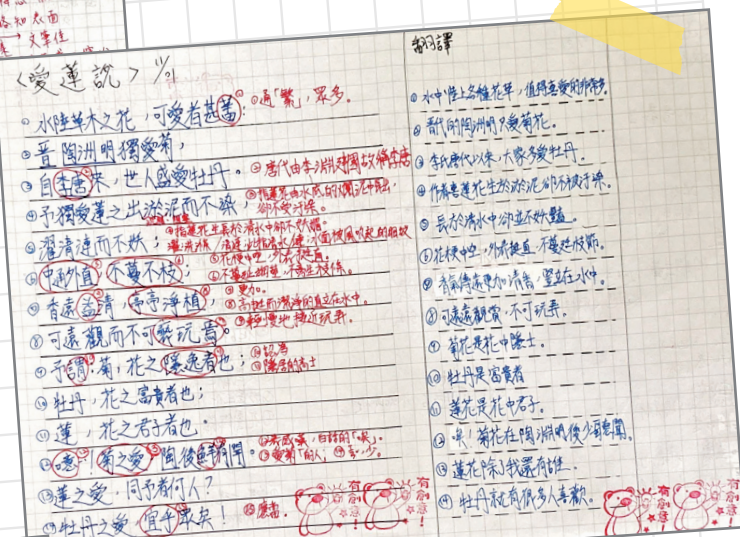 格知表面
→ 文筆佳
〈愛蓮說〉 11/21
①水陸草木之花，可愛者甚蕃。
①通「繁」，眾多。
②晉陶淵明獨愛菊；
③自李唐來，世人盛愛牡丹。
②唐代由李淵開國故稱李唐
④予獨愛蓮之出淤泥而不染，
③指蓮花由水底的爛泥中長出，
卻不受汙染。
⑤濯清漣而不妖；
④指蓮花生長於清水中卻不妖豔。
⑥中通外直，不蔓不枝；
⑤花梗中空，外表挺直。
⑦香遠益清，亭亭淨植，
⑦更加。
⑧高挺而潔淨的直立在水中。
⑧可遠觀而不可褻玩焉。
⑨輕慢地接近玩弄。
⑨予謂：菊，花之隱逸者也；
⑩認為
⑪隱居的高士
⑩牡丹，花之富貴者也；
⑪蓮，花之君子者也。
⑫噫！菊之愛，陶後鮮有聞。
⑫表感嘆，白話的「唉」。
⑬愛菊「的人」 ⑭音，少。
⑬蓮之愛，同予者何人？
⑭牡丹之愛，宜乎眾矣！
⑮應當。
有創意！
有創意！
翻譯
①水中、陸上各種花草，值得喜愛的非常多。
②晉代的陶淵明只愛菊花。
③李氏唐代以來，大家多愛牡丹。
④作者喜蓮花生於淤泥卻不被汙染。
⑤長於清水中卻並不妖豔。
⑥花梗中空，外表挺直，不蔓延枝節。
⑦香氣傳遠更加清香，豎立在水中。
⑧可遠遠觀賞，不可玩弄。
⑨菊花是花中隱士。
⑩牡丹是富貴者
⑪蓮花是花中君子。
⑫唉！菊花在陶淵明後少有聽聞。
⑬蓮花除了我還有誰。
⑭牡丹就有很多人喜歡。
有創意！
有創意！